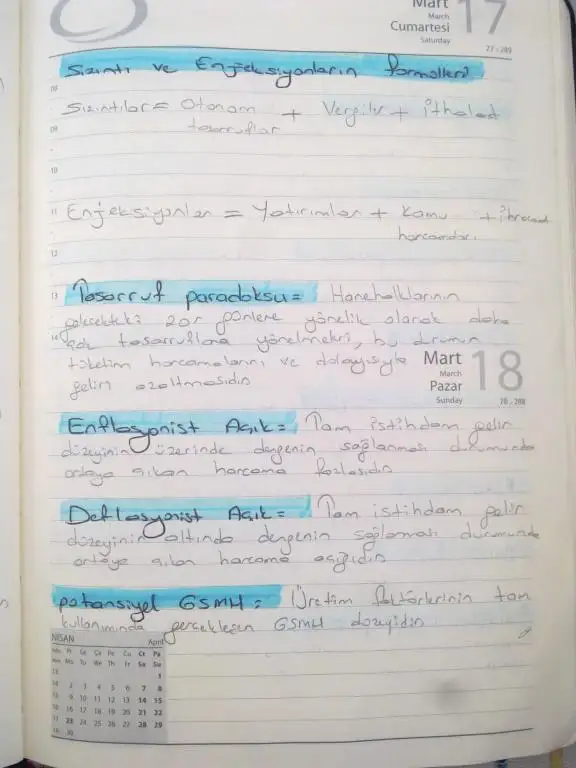 Mart
March 17
Cumartesi
Saturday
77 - 289
Sızıntı ve Enjeksiyonların formülleri
08
Sızıntılar = Otonom + Vergiler + İthalat
09 tasarruflar
10
11 Enjeksiyonlar = Yatırımlar + Kamu + İhracat
harcamaları
12
13 Tasarruf paradoksu = Hanehalklarının
gelecekteki zor günlere yönelik olarak daha
14 çok tasarruflara yönelmeleri, bu durumun
tüketim harcamalarını ve dolayısıyla
gelin azaltmasıdır
Mart
March 18
Pazar
Sunday
78 - 288
Enflasyonist Açık = Tam istihdam gelir
düzeyinin üzerinde dengenin sağlanması durumunda
ortaya çıkan harcama fazlasıdır
Deflasyonist Açık = Tam istihdam gelir
düzeyinin altında dengenin sağlaması durumunda
ortaya çıkan harcama açığıdır
potansiyel GSMH = Üretim faktörlerinin tam
kullanımında gerçekleşen GSMH düzeyidir
NİSAN April
Pt Sa Ça Pe Cu Ct Pa
Mo Tu We Th Fr Sa Su
13 1
14 2 3 4 5 6 7 8
15 9 10 11 12 13 14 15
16 16 17 18 19 20 21 22
17 23 24 25 26 27 28 29
18 30